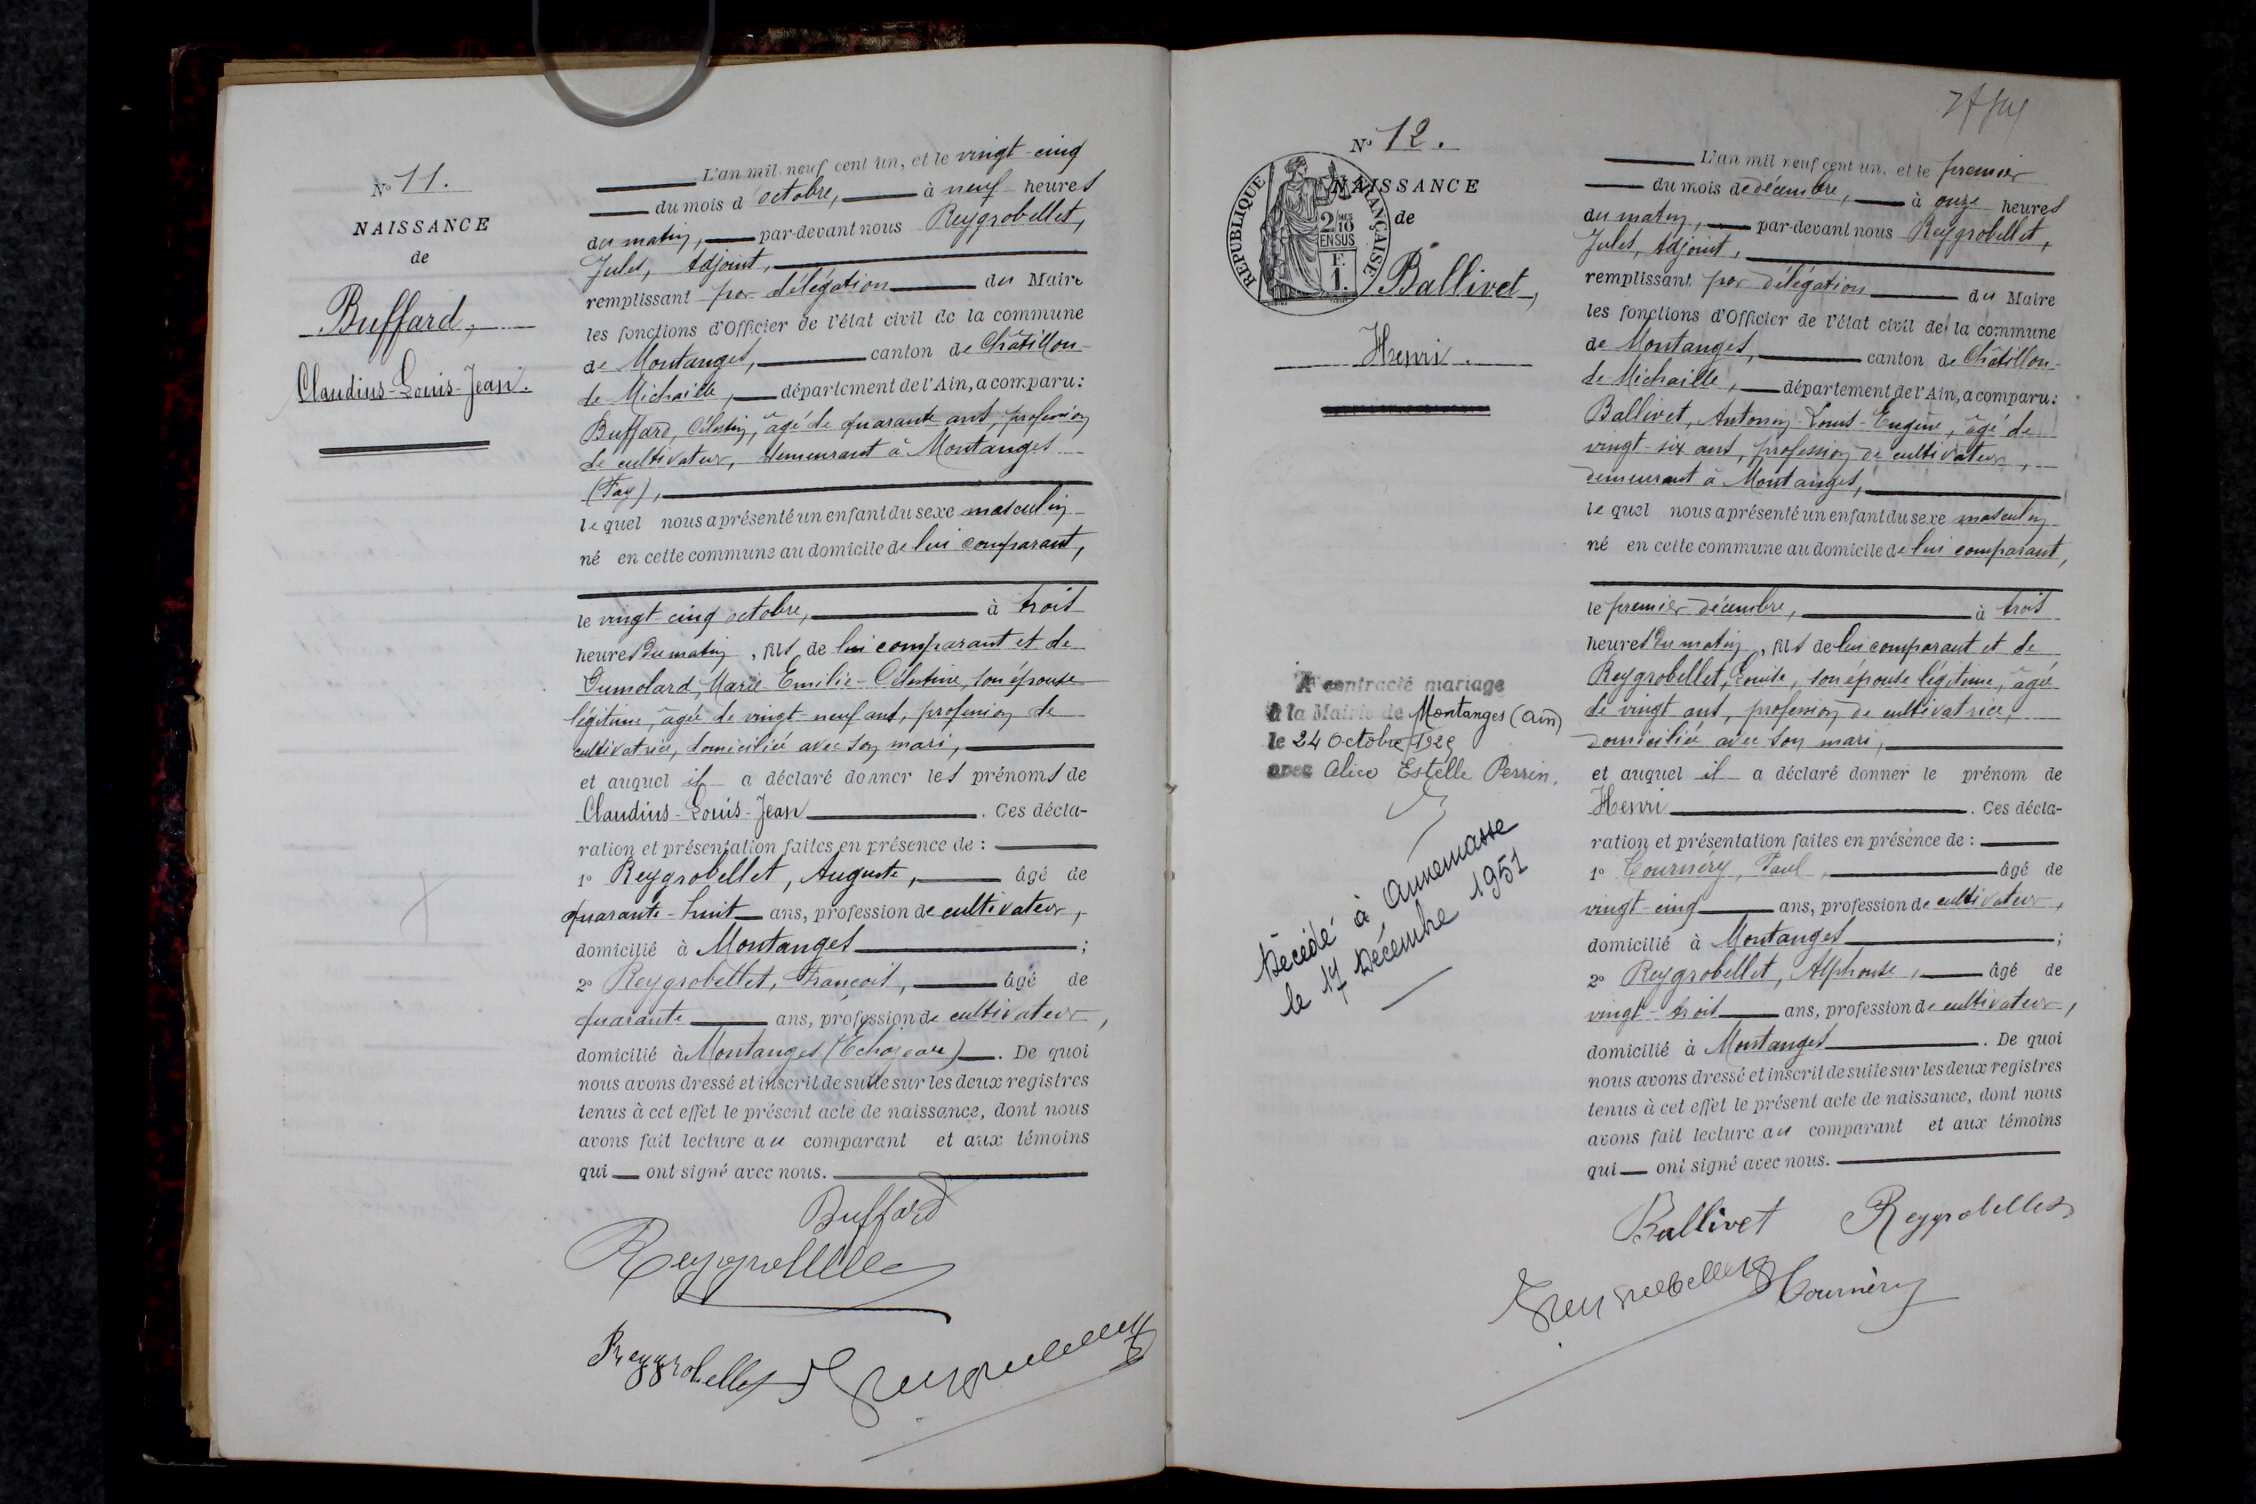 N° 11.
NAISSANCE
de
Buffard,
Claudius-Louis-Jean.
L'an mil neuf cent un, et le vingt-cinq
du mois d'octobre, à neuf heures
du matin, par-devant nous Reygrobellet,
Jules, Adjoint,
remplissant par délégation du Maire
les fonctions d'Officier de l'état civil de la commune
de Montanges, canton de Châtillon-
de Michaille, département de l'Ain, a comparu:
Buffard, Célestin, âgé de quarante ans, profession
de cultivateur, demeurant à Montanges
(Fay),
lequel nous a présenté un enfant du sexe masculin
né en cette commune au domicile de lui comparant,
le vingt-cinq octobre, à trois
heures du matin, fils de lui comparant et de
Dumolard, Marie-Emilie-Célestine, son épouse
légitime, âgée de vingt-neuf ans, profession de
cultivatrice, domiciliée avec son mari,
et auquel il a déclaré donner les prénoms de
Claudius-Louis-Jean. Ces décla-
ration et présentation faites en présence de:
1° Reygrobellet, Auguste, âgé de
quarante-huit ans, profession de cultivateur,
domicilié à Montanges;
2° Reygrobellet, François, âgé de
quarante ans, profession de cultivateur,
domicilié à Montanges (Echazeau). De quoi
nous avons dressé et inscrit de suite sur les deux registres
tenus à cet effet le présent acte de naissance, dont nous
avons fait lecture au comparant et aux témoins
qui ont signé avec nous.
Buffard
Reygrobellet
Reygrobellet
N° 12.
RÉPUBLIQUE FRANÇAISE
2/10 EN SUS
F. 1.
NAISSANCE
de
Ballivet,
Henri.
A contracté mariage
à la Mairie de Montanges (Ain)
le 24 Octobre 1929
avec Alice Estelle Perrin.
Décédé à Annemasse
le 17 Décembre 1951
L'an mil neuf cent un, et le premier
du mois de décembre, à onze heures
du matin, par-devant nous Reygrobellet,
Jules, Adjoint,
remplissant par délégation du Maire
les fonctions d'Officier de l'état civil de la commune
de Montanges, canton de Châtillon-
de Michaille, département de l'Ain, a comparu:
Ballivet, Antonin-Louis-Eugène, âgé de
vingt-six ans, profession de cultivateur,
demeurant à Montanges,
lequel nous a présenté un enfant du sexe masculin
né en cette commune au domicile de lui comparant,
le premier décembre, à trois
heures du matin, fils de lui comparant et de
Reygrobellet, Louise, son épouse légitime, âgée
de vingt ans, profession de cultivatrice,
domiciliée avec son mari,
et auquel il a déclaré donner le prénom de
Henri. Ces décla-
ration et présentation faites en présence de:
1° Tournéry, Paul, âgé de
vingt-cinq ans, profession de cultivateur,
domicilié à Montanges;
2° Reygrobellet, Alphonse, âgé de
vingt-trois ans, profession de cultivateur,
domicilié à Montanges. De quoi
nous avons dressé et inscrit de suite sur les deux registres
tenus à cet effet le présent acte de naissance, dont nous
avons fait lecture au comparant et aux témoins
qui ont signé avec nous.
Ballivet Reygrobellet
Reygrobellet Tournéry